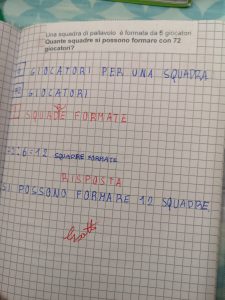 Una squadra di pallavolo è formata da 6 giocatori.
Quante squadre si possono formare con 72
giocatori?
GIOCATORI PER UNA SQUADRA
GIOCATORI
SQUADRE FORMATE
:6=12 SQUADRE FORMATE
RISPOSTA
SI POSSONO FORMARE 12 SQUADRE